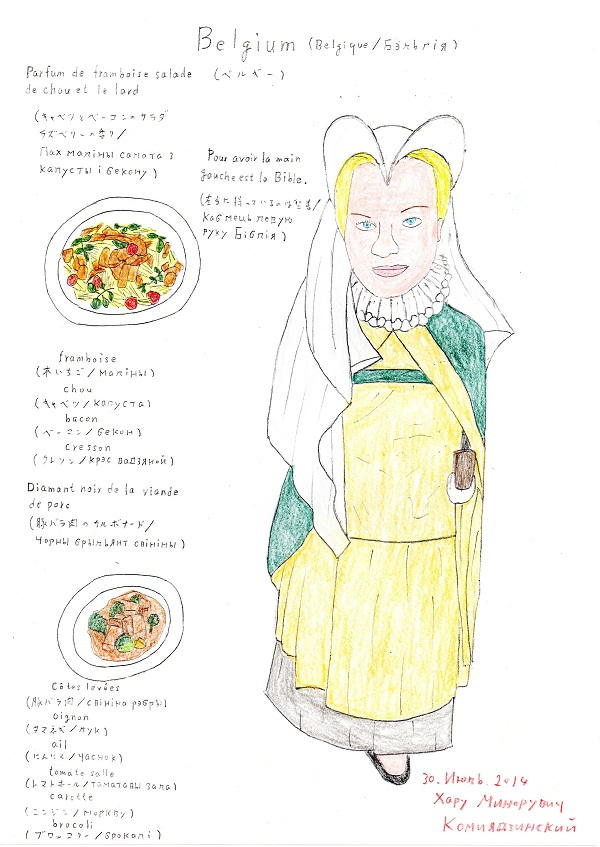 Belgium (Belgique/Бэльгія)
(ベルギー)
Parfum de framboise salade
de chou et le lard
(キャベツとベーコンのサラダ
ラズベリーの香り/
Пах маліны салата з
капусты і бекону)
Pour avoir la main
gauche est la Bible.
(左手に持っているのは聖書/
Каб мець левую
руку Біблія)
framboise
(木いちご/маліны)
chou
(キャベツ/капуста)
bacon
(ベーコン/бекон)
cresson
(クレソン/крэс вадзяной)
Diamant noir de la viande
de porc
(豚バラ肉のカルボナード/
Чорны брыльянт свініны)
Côtes levées
(豚バラ肉/свініна рэбры)
oignon
(タマネギ/лук)
ail
(にんにく/часнок)
tomate salle
(トマトホール/таматавы зала)
carotte
(ニンジン/моркву)
brocoli
(ブロッコリー/брокалі)
30. Июль. 2014
Хару Минорувич
Комиядзинский